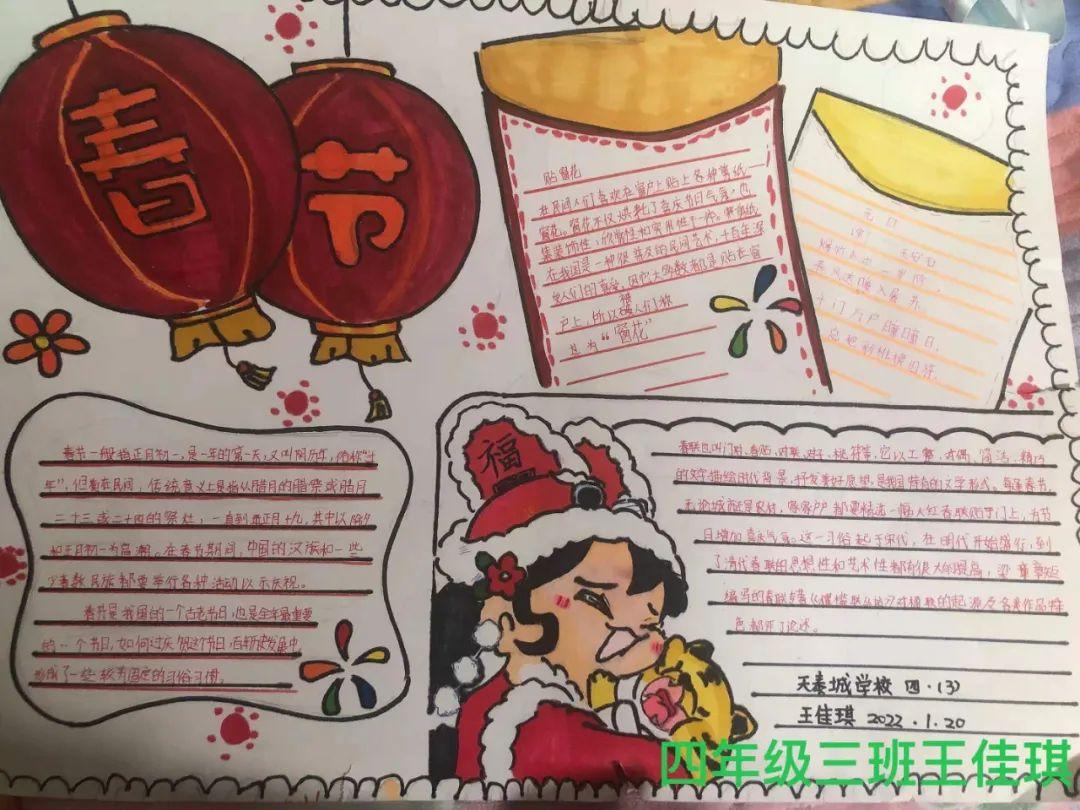 春节
贴窗花
在民间人们喜欢在窗户上贴上各种剪纸——
窗花。窗花不仅烘托了喜庆节日气氛，也
集装饰性、欣赏性和实用性于一体。剪纸
在我国是一种很普及的民间艺术，千百年深
受人们的喜爱，因它大多数都是贴在窗
户上，所以被人们称
其为“窗花”
元日
宋 王安石
爆竹声中一岁除，
春风送暖入屠苏。
千门万户曈曈日，
总把新桃换旧符。
春节一般指正月初一，是一年的第一天，又叫阴历年，俗称“过
年”，但是在民间，传统意义上是指从腊月的腊祭或腊月
二十三或二十四的祭灶，一直到正月十九，其中以除夕
和正月初一为高潮。在春节期间，中国的汉族和一些
少数民族都要举行各种活动以示庆祝。
春节是我国的一个古老节日，也是全年最重要
的一个节日，如何过庆贺这个节日，在历史发展中，
形成了一些较为固定的习俗习惯。
福
春联也叫门对、春贴、对联、对子、桃符等，它以工整、对偶、简洁、精巧
的文字描绘时代背景，抒发美好愿望，是我国特有的文学形式。每逢春节，
无论城市还是农村，家家户户都要精选一幅大红春联贴于门上，为节
日增加喜庆气氛。这一习俗起于宋代，在明代开始盛行，到
了清代春联的思想性和艺术性都有很大的提高，梁章钜
编写的春联专著《楹联丛话》对楹联的起源及各类作品特
色都作了论述。
天泰城学校 四·(3)
王佳琪 2022.1.20
四年级三班王佳琪